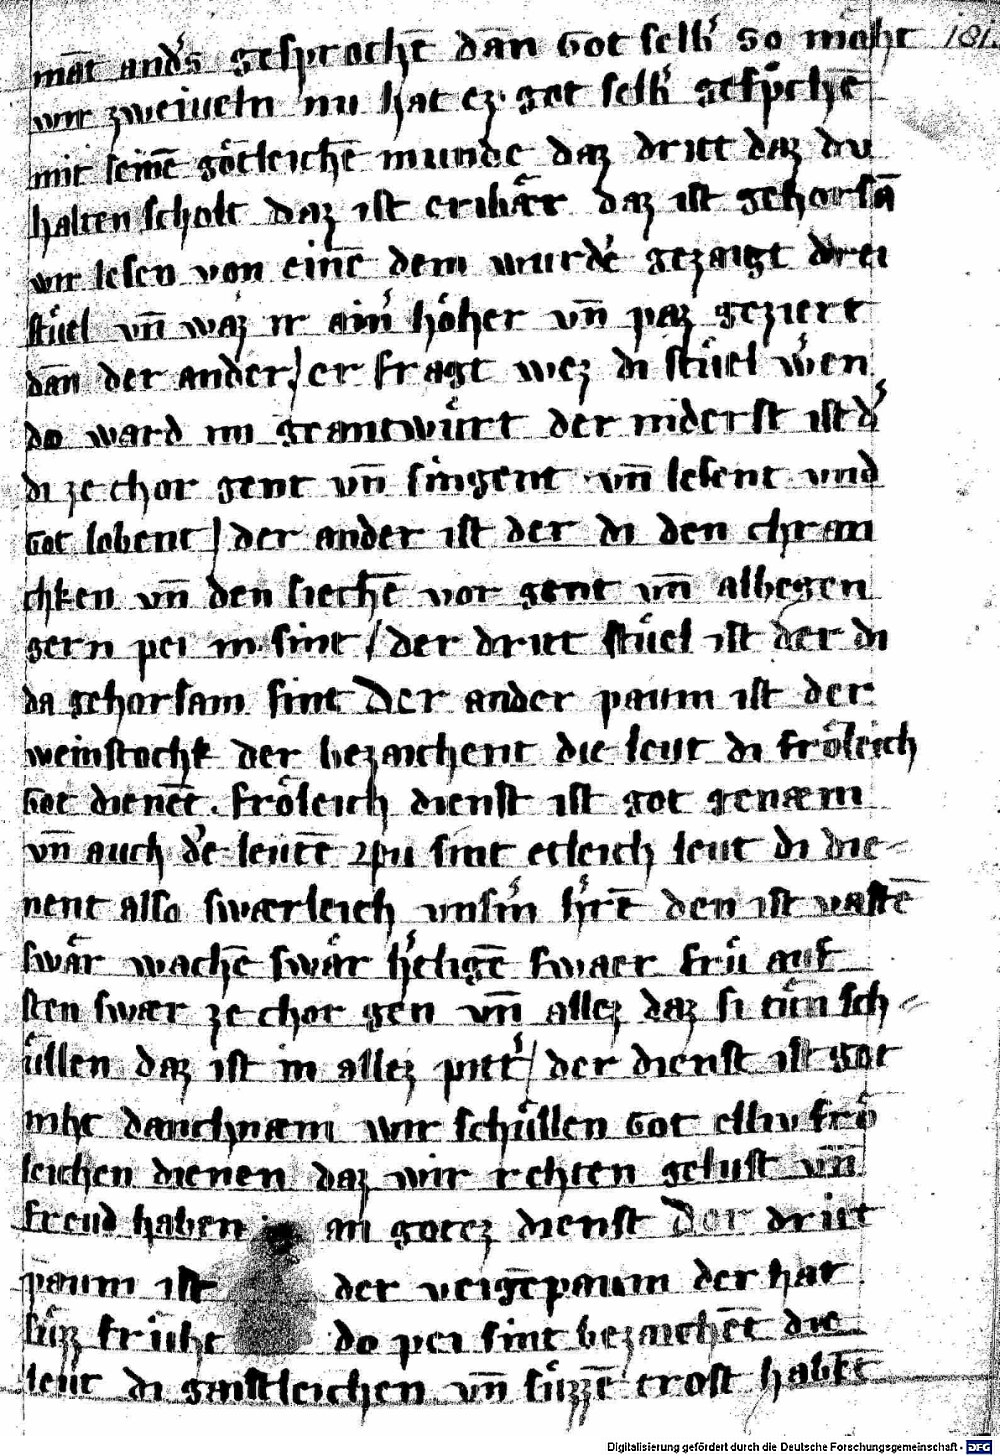 181.
mā̄t and's gesprochē dān Got selb' so möht
wir zweiueln nu hat ez got selb' gesp̊chē
mit seinē götleichē munde daz dritt daz du
halten scholt daz ist eribǣr daz ist gehorsā
wir lesen von einē dem wurdē gezaigt drei
stůel vn̄ waz ir ain' höher vn̄ paz geziert
dān der ander / er fragt wez di stůel w'en
do ward im geantwůrt der niderst ist d'
di ze chor gent vn̄ singent vn̄ lesent und
Got lobent / der ander ist der di den chran
chken vn̄ den siechē vor gent vn̄ albegen
gern pei in sint / der dritt stůel ist der di
da gehorsam sint Der ander paum ist der
weinstochk der bezaichent die leut di fröleich
Got dienēt . fröleich dienst ist got genæm
vn̄ auch d'e leutē zpu sint etleich leut di die-
nent also swærleich unserm h're den ist vastē
swär wachē swär h'eligē swaer frů auf
sten swær ze chor gen vn̄ allez daz si tůn sch-
ůllen daz ist in allez pitt' / der dienst ist got
niht danchnæm wir schůllen Got elliv frö
leichen dienen daz wir rehten gelust vn̄
freud haben an gotez dienst Der dritt
paum ist der veigēpaum der hat
sůzz frůht do pei sint bezaichēt die
leut di gaistleichen vn̄ sůzzē trost habēt
Digitalisierung gefördert durch die Deutsche Forschungsgemeinschaft - DFG